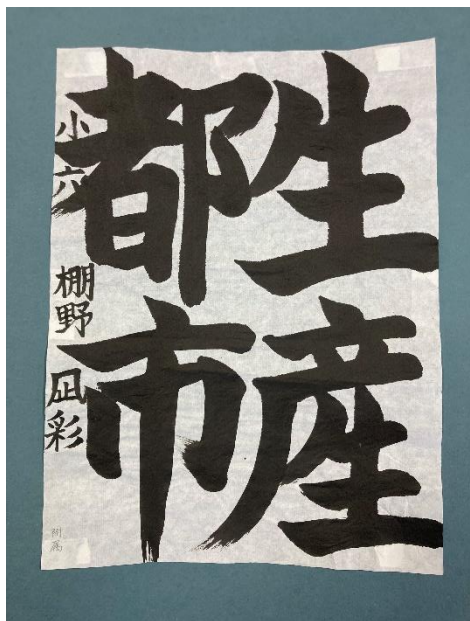 生産
都市
小六 棚野凪彩